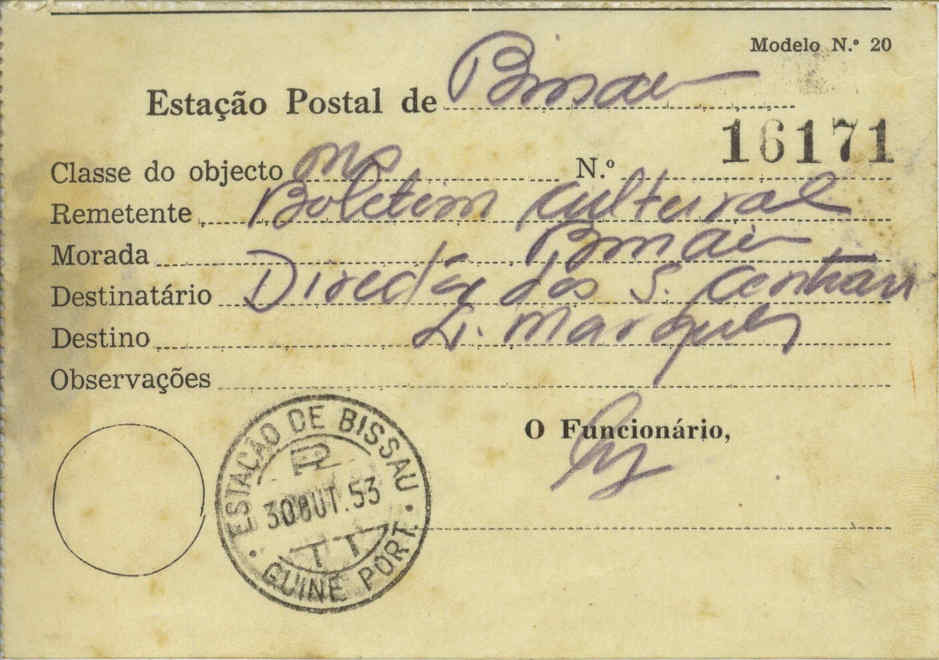 Modelo N.º 20
Estação Postal de Bissau
Classe do objecto N.º 16171
Remetente Boletim Cultural
Morada Bissau
Destinatário Direcção dos S.
Destino L. Marques
Observações
O Funcionário,
ESTAÇÃO DE BISSAU
30 OUT. 53
TT
GUINÉ PORT.